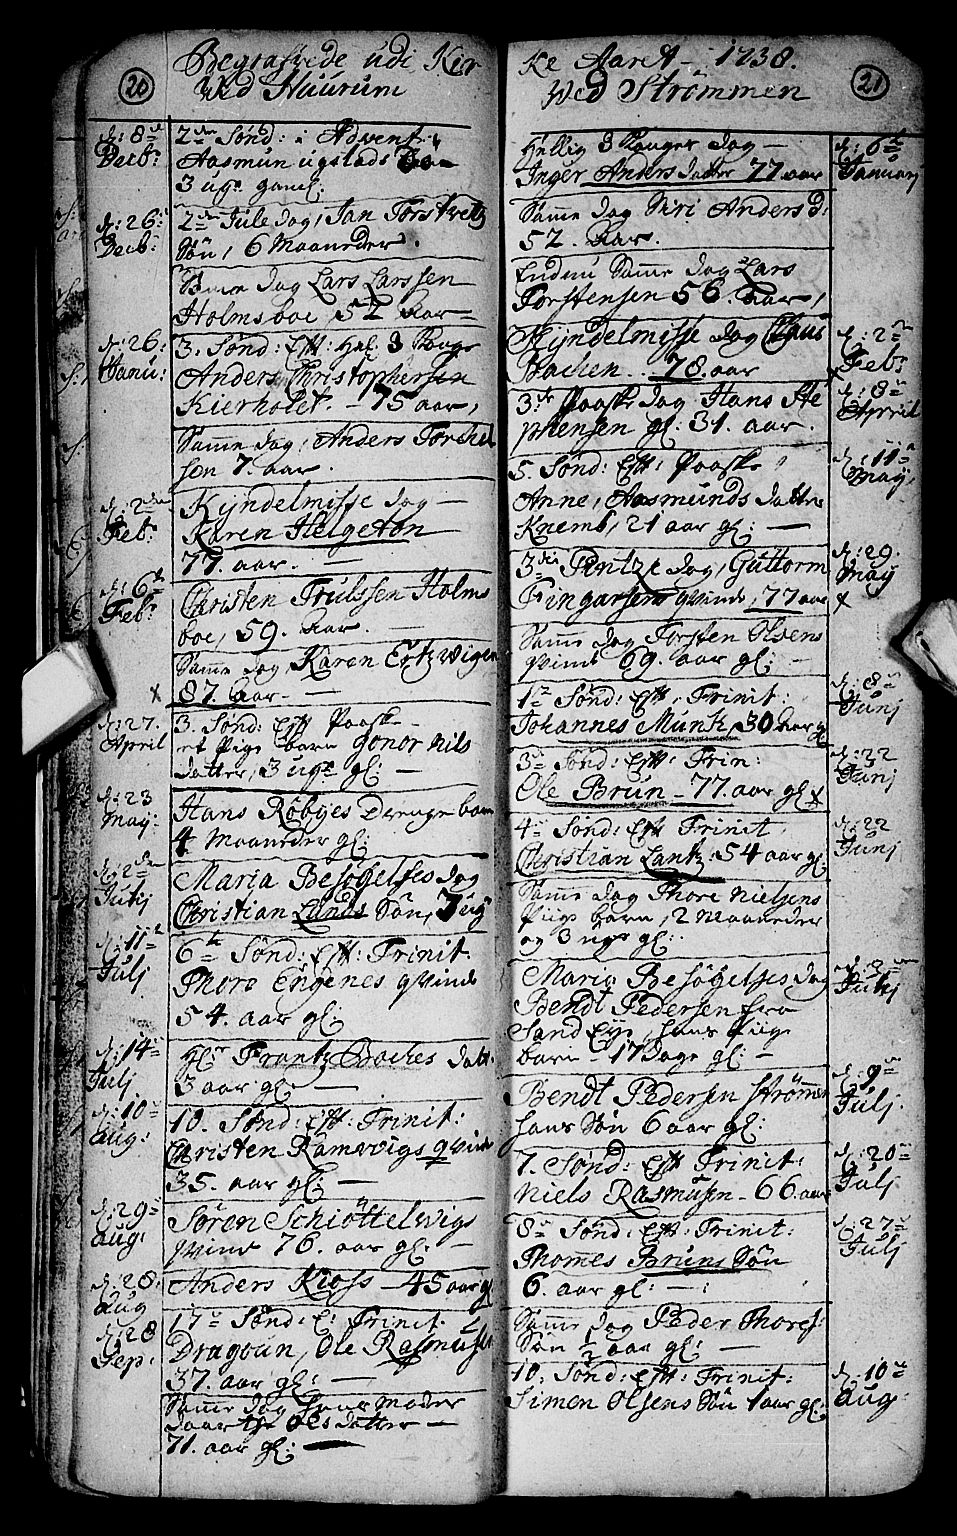 20
Begrafvede udi Kir
Ved Huurum
d: 8de
Decb:
2den Sønd: i Advent:
Aasmun ugstads
3 uge gaml:
d: 26:
Decb:
2den Jule dag, Jan Torstvetz
Søn, 6 Maaneder.
Samme dag Lars Larssen
Holmsboe, 52 Aar
d: 26:
Janu:
3. Sønd: Eft: Hel: 3 Konge
Anders Christophersen
Kierholet. - 75 aar,
Samme dag, Anders Torchel
sen 7. aar.
d: 2den
Feb:
Kyndelmisse dag -
Karen Helgeton
77. aar. -
d: 6te
Feb:
Christen Trulssen Holms
boe, 59. Aar. -
Samme dag Karen Ertzwigen
x 87. Aar. -
d: 27.
April
3. Sønd: Eft Paaske
et Pige barn Gonor Nils
datter, 3 uge gl: -
d: 23
May:
Hans Røbyes Drenge barn
4 Maaneder gl:
d: 2den
Julj
Maria Besøgelses dag
Christian Lunds Søn, 7 ug
d: 11te
Julj
6te Sønd: Eft: Trinit.
Thore Engenes qvinde
54. aar gl:
d: 14
Julj
Frantz Baches datt:
3 aar gl: -
d: 10
Aug:
10. Sønd: Eft: Trinit:
Christen Ramsvigs qvinde
35. aar gl: -
d: 29
aug:
Søren Schiøttelwigs
qvinde 76. aar gl: -
d: 28:
aug
Anders Kioss - 45 aar gl
d: 28
Sep:
17de Sønd: E: Trinit.
Dragoun, Ole Rasmusen
37. aar gl: -
Samme dag hans Moder
Olesdatter -
71. aar gl: -
21
ke Aaret - 1738.
Ved Strømmen
Hellig 3 Konger dag -
Inger Anders datter 77 aar
d: 6te
Januarj
Samme dag Siri Anders d:
52. Aar.
Endnu Samme dag Lars
Torstensen 56. Aar,
Kyndelmisse dag Claus
Bachen. . 78. aar
d: 2den
Feb:
3die Paaske dag Hans Ste
phensen gl: 31. aar.
d: 8de
April
5. Sønd: Eft: Paaske
Anne, Aasmunds datter
Knemb, 21 aar gl: -
d: 11te
May,
3die Pintze dag, Guttorm
Fingarsens qvinde, 77 aar
d: 29.
May
x
Samme dag Torsten Olsens
qvinde 69. aar gl:
1te Sønd: Eft, Trinit:
Johannes Munk, 30 aar gl
d: 8de
Junj
3die Sønd: Eft: Trin:
Ole Brun - 77. aar gl x
d: 22
Junj
4de Sønd: Eft Trinit,
Christian Lantz: 54 aar gl:
d: 22
Junj
Samme dag Thore Nielsens
Pige barn, 2 Maaneder
og 3 uge gl:
Maria Besøgelses dag
Bendt Pedersen fra
Sand Eye, hans Pige
barn - 17 dage gl: -
d: 2den
Julj
Bendt Pedersen Strømmen
hans Søn 6 aar gl:
d: 9de
Julj.
7. Sønd: Eft Trinit:
Niels Rasmusen - 66. aar
d: 20de
Julj
8de Sønd: Eft: Trinit:
Thomes Bruns Søn
6. aar gl: - :
d: 27de
Julj
Samme dag Peder Thores:
Søn 1/2 aar gl: -
10. Sønd: Eft: Trinit:
Simen Olsens Søn 1 aar gl:
d: 10de
Aug: